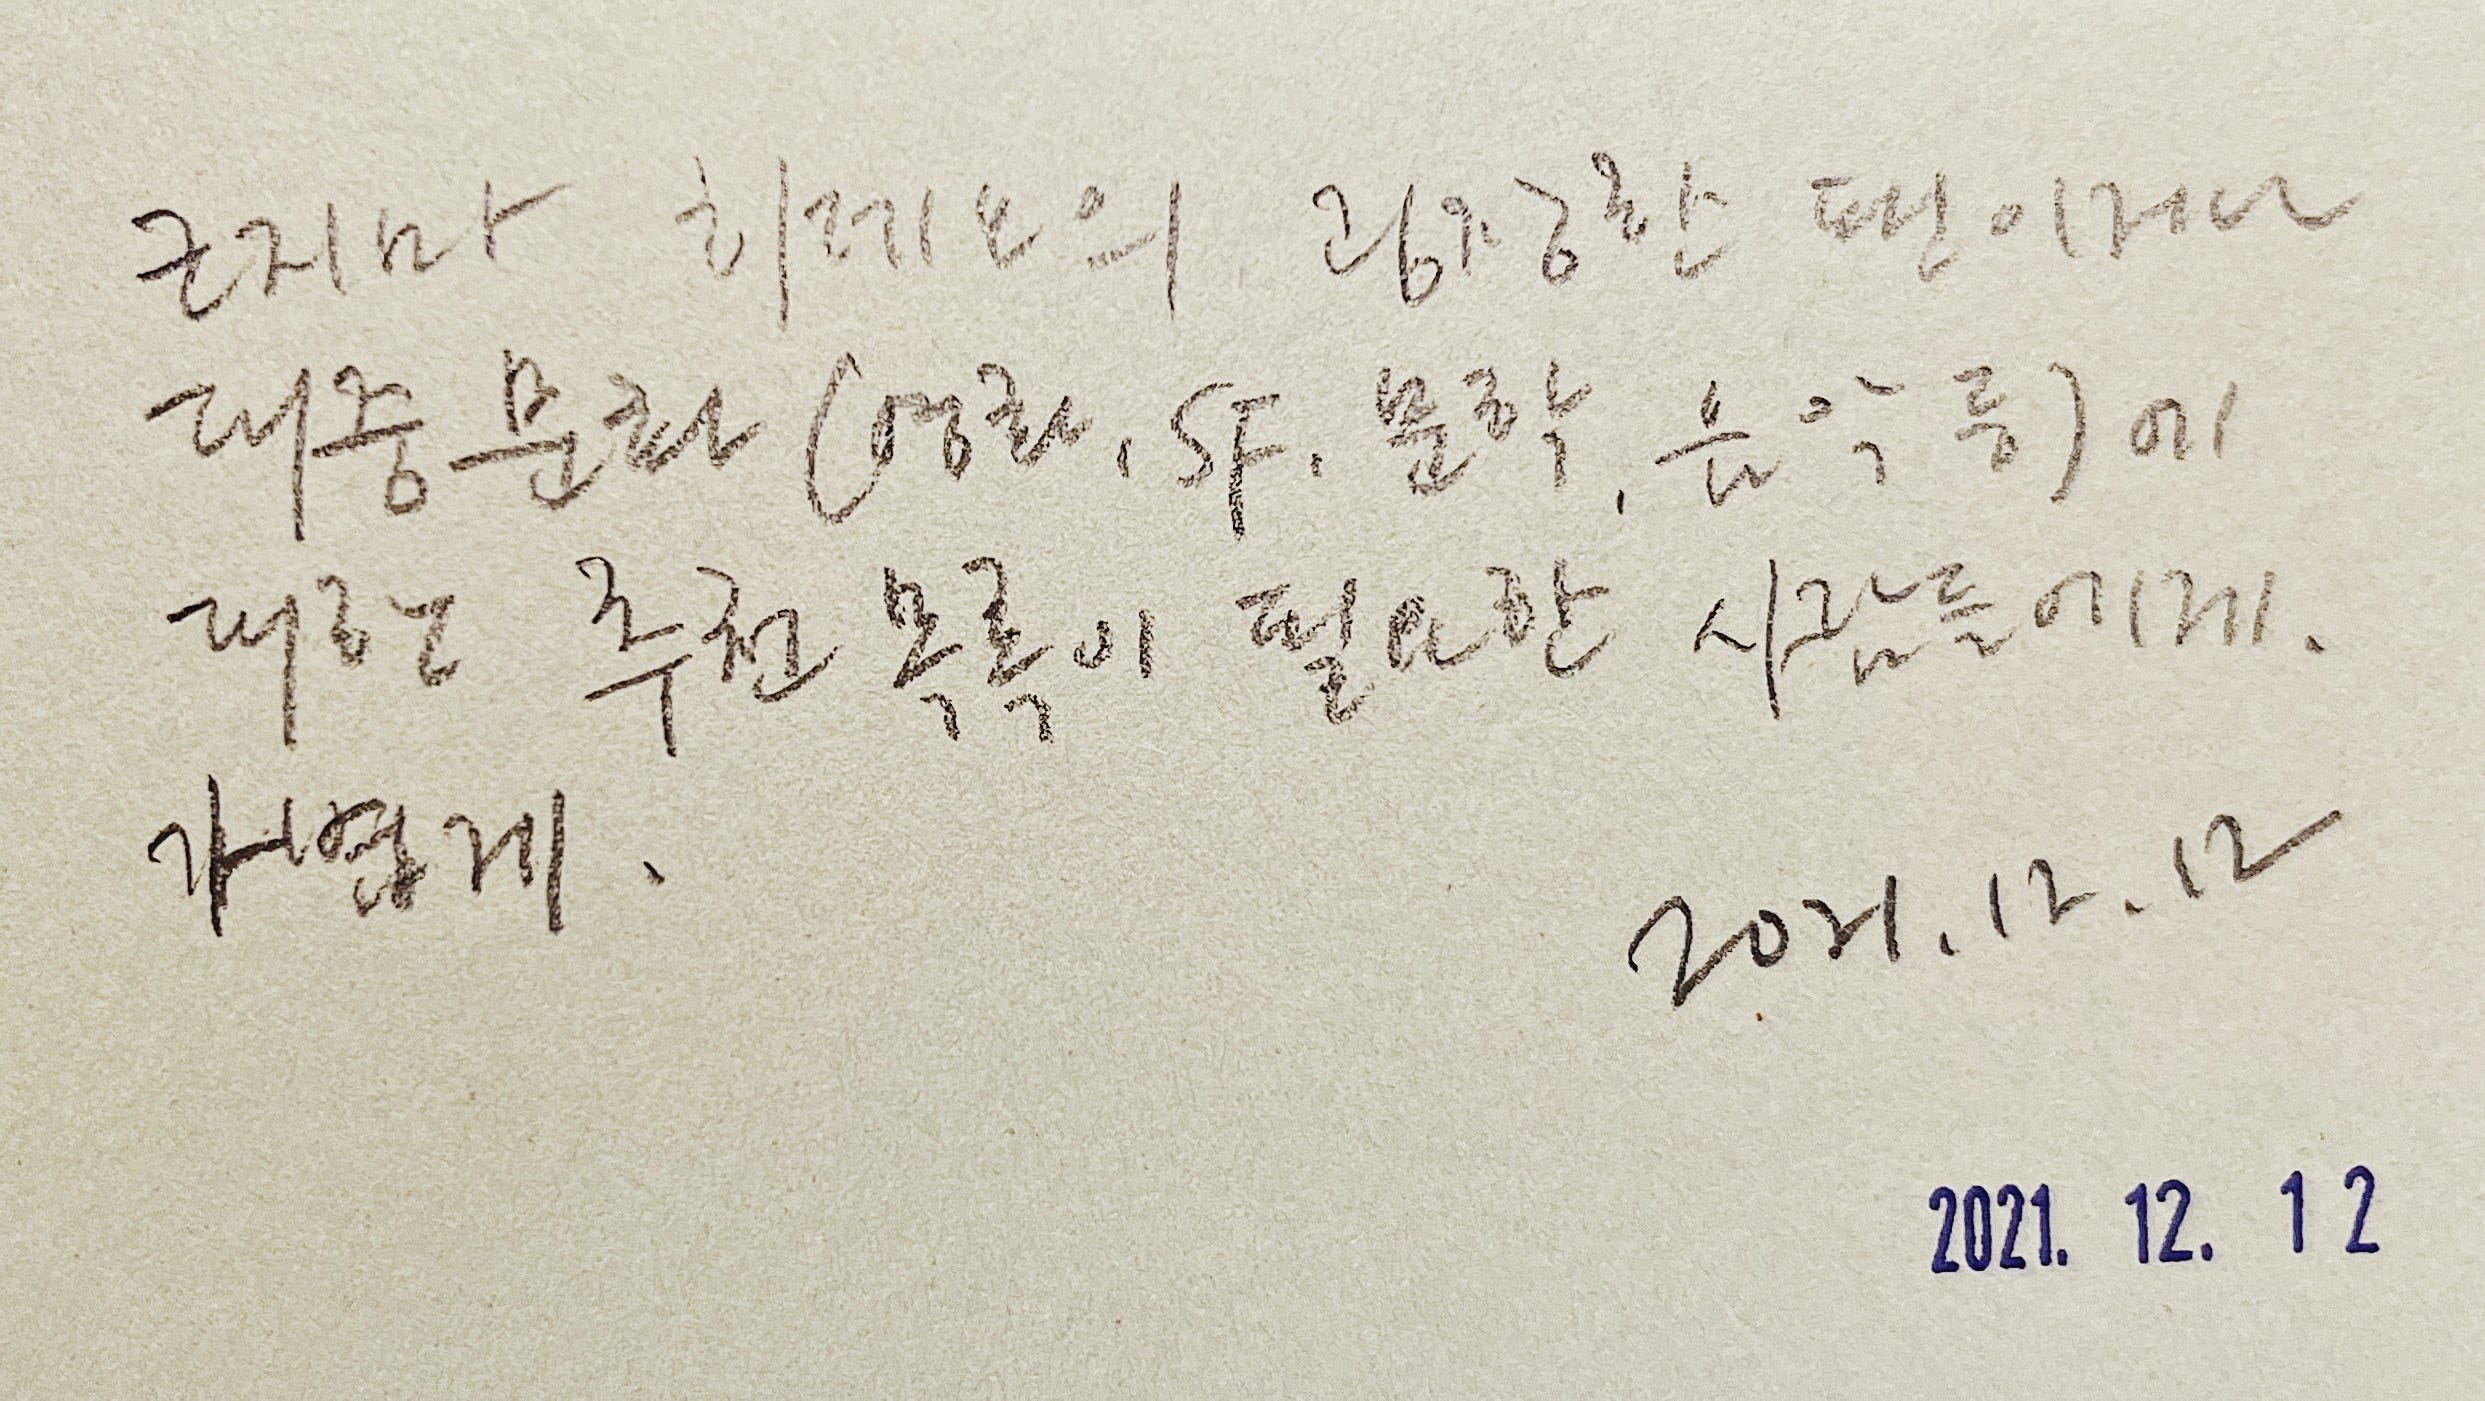 코지마 히데오의 굉장한 팬이거나
대중문화 (영화, SF, 문학, 음악 등)에
대한 추천 목록이 필요한 사람들에게.
가볍게.
2021. 12. 12
2021. 12. 12